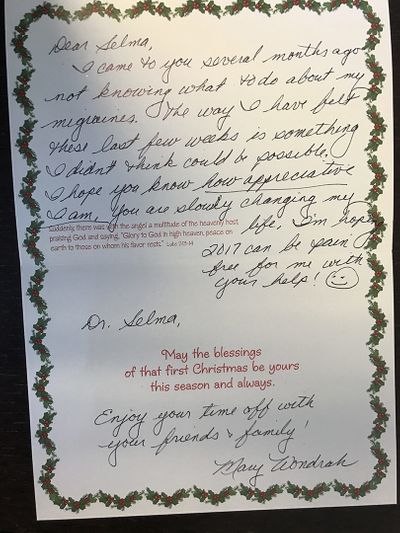 Dear Selma,
I came to you several months ago
not knowing what to do about my
migraines. The way I have felt
these last few weeks is something
I didn't think could be possible.
I hope you know how appreciative
I am, you are slowly changing my
Suddenly there was with the angel a multitude of the heavenly host,
praising God and saying, "Glory to God in high heaven, peace on
earth to those on whom his favor rests." Luke 2:13-14
life, I'm hoping
2017 can be pain
free for me with
your help! ☺
Dr. Selma,
May the blessings
of that first Christmas be yours
this season and always.
Enjoy your time off with
your friends & family!
Mary Wondrak